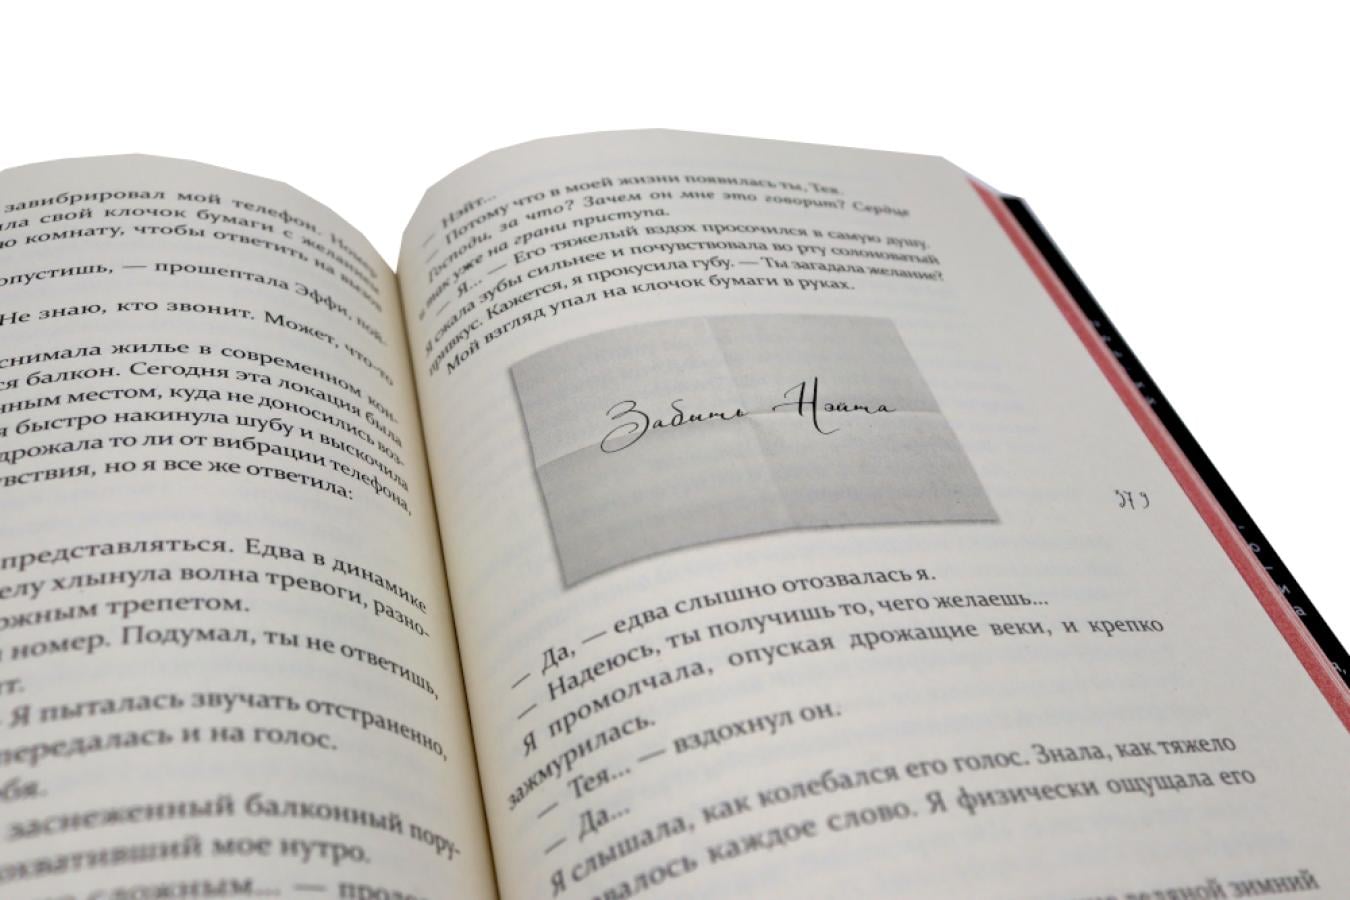 завибрировал мой телефон. Номер
свой клочок бумаги с желанием
комнату, чтобы ответить на вызов
опустишь, — прошептала Эффи, пой-
Не знаю, кто звонит. Может, что-то
снимала жилье в современном ком-
балкон. Сегодня эта локация была
местом, куда не доносились воз-
быстро накинула шубу и выскочила
дрожала то ли от вибрации телефона,
но я все же ответила:
представляться. Едва в динамике
хлынула волна тревоги, разно-
трепетом.
номер. Подумал, ты не ответишь,
Я пыталась звучать отстраненно,
передалась и на голос.
заснеженный балконный пору-
мое нутро.
сложным... —
— Нэйт...
— Потому что в моей жизни появилась ты, Тея.
Господи, за что? Зачем он мне это говорит? Сердце
и так уже на грани приступа.
— Я... — Его тяжелый вздох просочился в самую душу.
Я сжала зубы сильнее и почувствовала во рту солоноватый
привкус. Кажется, я прокусила губу. — Ты загадала желание?
Мой взгляд упал на клочок бумаги в руках.
Забыть Нэйта
379
— Да, — едва слышно отозвалась я.
— Надеюсь, ты получишь то, чего желаешь...
Я промолчала, опуская дрожащие веки, и крепко
зажмурилась.
— Тея... — вздохнул он.
— Да...
Я слышала, как колебался его голос. Знала, как тяжело
каждое слово. Я физически ощущала его
ледяной зимний